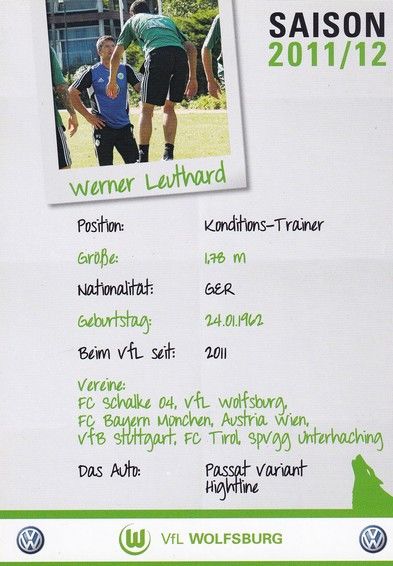 SAISON
2011/12
Werner Leuthard
Position: Konditions-Trainer
Größe: 1,78 m
Nationalität: GER
Geburtstag: 24.01.1962
Beim VfL seit: 2011
Vereine:
FC Schalke 04, VfL Wolfsburg,
FC Bayern München, Austria Wien,
VfB Stuttgart, FC Tirol, SpVgg Unterhaching
Das Auto: Passat Variant
Hightline
VfL WOLFSBURG